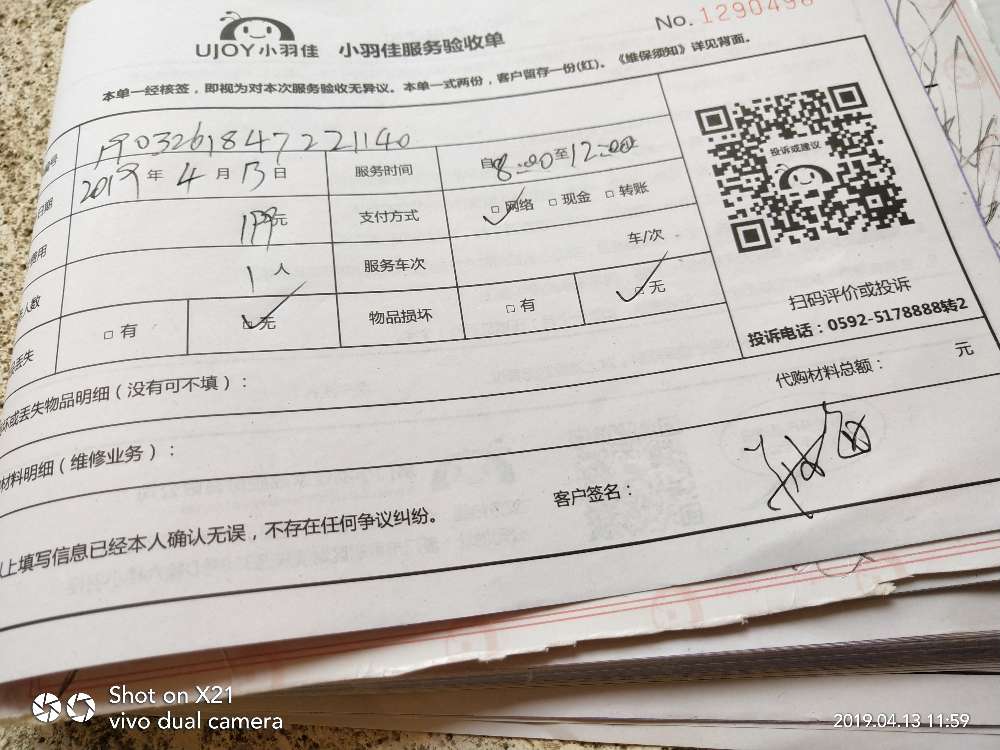 UJOY小羽佳 小羽佳服务验收单
No. 1290498
本单一经核签，即视为对本次服务验收无异议。本单一式两份，客户留存一份(红)。《维保须知》详见背面。
号 1903261847221140
日期 2019 年 4 月 13 日 服务时间 自 8:00 至 12:00
费用 元 支付方式 □ 网络 □ 现金 □ 转账
人数 1 人 服务车次 车/次
丢失 □ 有 □ 无 物品损坏 □ 有 □ 无
投诉或建议
扫码评价或投诉
投诉电话：0592-5178888转2
坏或丢失物品明细（没有可不填）：
代购材料总额： 元
材料明细（维修业务）：
上填写信息已经本人确认无误，不存在任何争议纠纷。
客户签名：
Shot on X21
vivo dual camera
2019.04.13 11:59